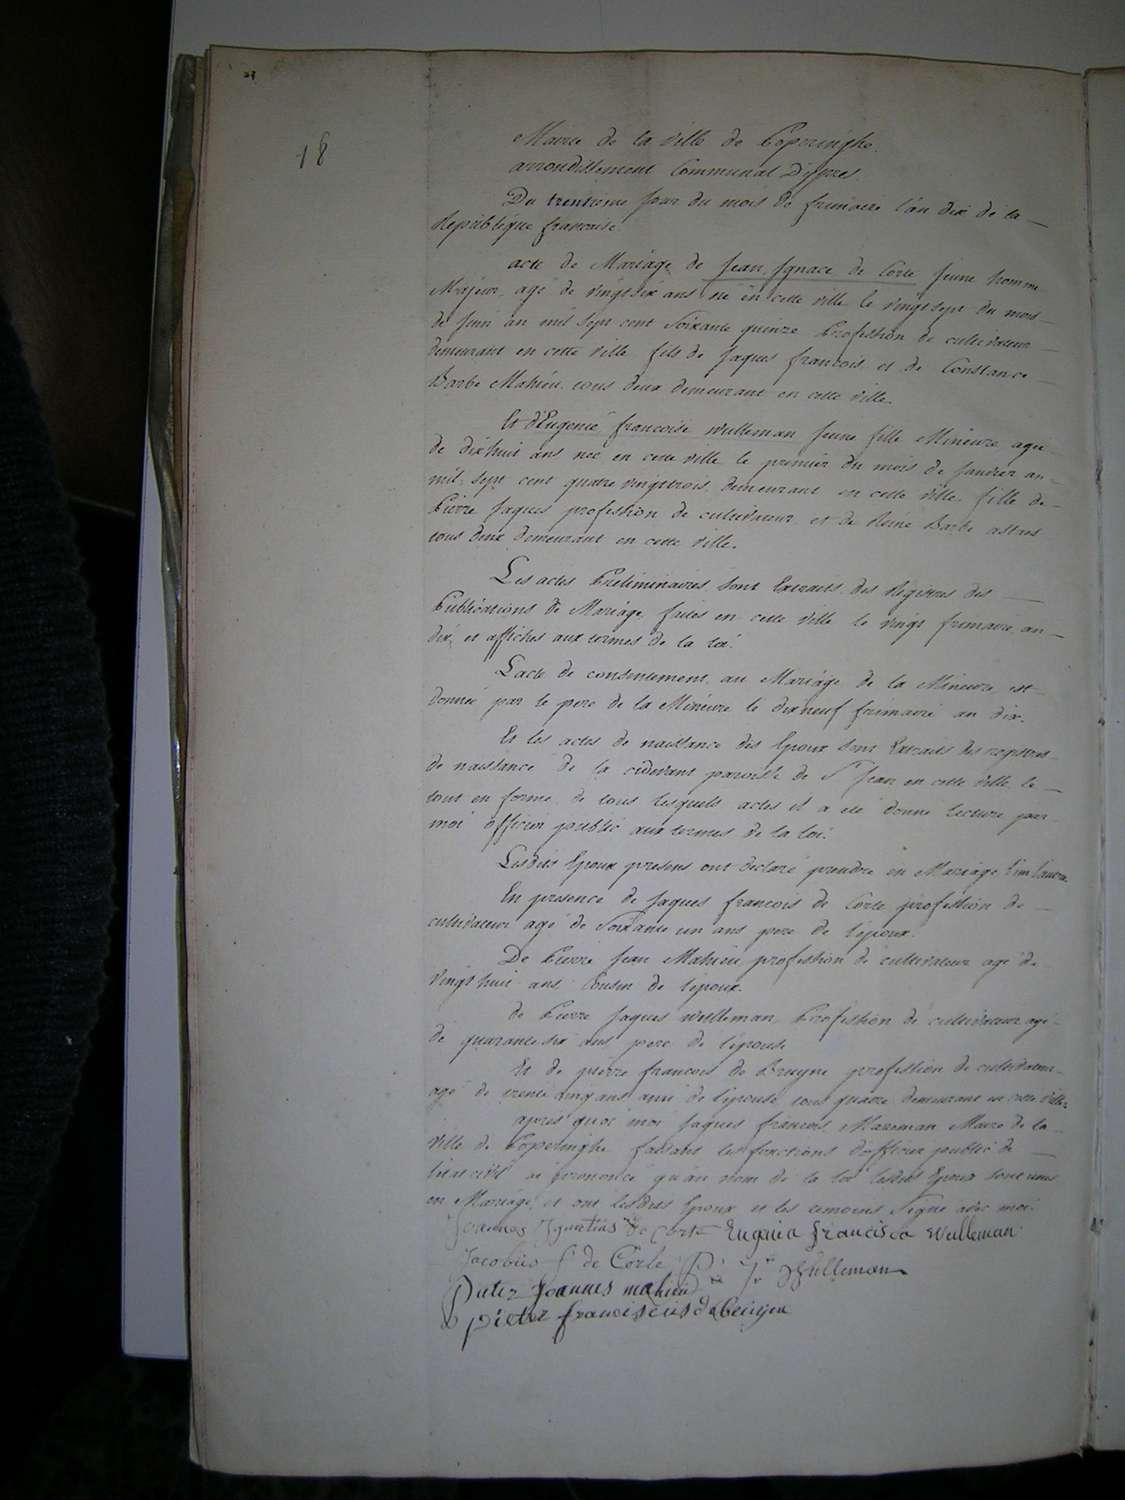 18
Mairie de la ville de Poperinghe.
arrondissement Communal D'ypres
Du trentieme jour du mois de frimaire l'an dix de la —
Republique francaise.
acte de Mariage de Jean Ignace de Corte jeune homme
Majeur, agé de vingt six ans né en cette ville le vingt sept du mois —
de juin an mil sept cent Soixante quinze Profession de cultivateur
demeurant en cette ville fils de Jaques francois et de Constance —
Barbe Mahieu tous deux demeurant en cette ville.
Et d'Eugenie francoise wulleman jeune fille Mineure agée
de dixhuit ans neé en cette ville le premier du mois de Janvier an —
mil sept cent quatre vingt trois demeurant en cette ville, fille de —
Pierre Jaques profession de cultivateur et de Reine Barbe
tous deux demeurant en cette ville.
Les actes Preliminaires sont Extraits des Registres des —
Publications de Mariage faites en cette ville le vingt frimaire an —
dix, et affiches aux termes de la loi.
L'acte de consentement au Mariage de la Mineure est
donnée par le pere de la Mineure le dixneuf frimaire an dix.
Et les actes de naissance des Epoux sont Extraits des registres
de naissance de la cidevant paroisse de St Jean en cette ville le —
tout en forme, de tous lesquels actes il a été donné lecture par
moi officier public aux termes de la loi.
Lesdits Epoux presens ont declaré prendre en Mariage l'un l'autre
En presence de Jaques francois de Corte profession de —
cultivateur agé de Soixante un ans pere de lepoux.
De Pierre Jean Mahieu profession de cultivateur agé de
vingt huit ans Cousin de lepoux.
de Pierre Jaques wulleman, Profession de cultivateur agé
de quarante six ans pere de lepouse
Et de pierre francois de Bruyne profession de cultivateur
agé de trente cinq ans ami de lepouse tous quatre demeurant en cette ville.
apres quoi moi Jaques francois Mazeman Maire de la —
ville de Poperinghe faisant les fonctions d'officier public de —
l'état civil ai prononcé qu'au nom de la loi lesdits Epoux sont unis
en Mariage, et ont lesdits Epoux et les temoins Signé avec moi.
Joannes Ignatius de Corte Eugenia francisca Wulleman
Jacobus f de Corte P. J. Wulleman
Pieter Joannes mahieu
pieter franciscus de